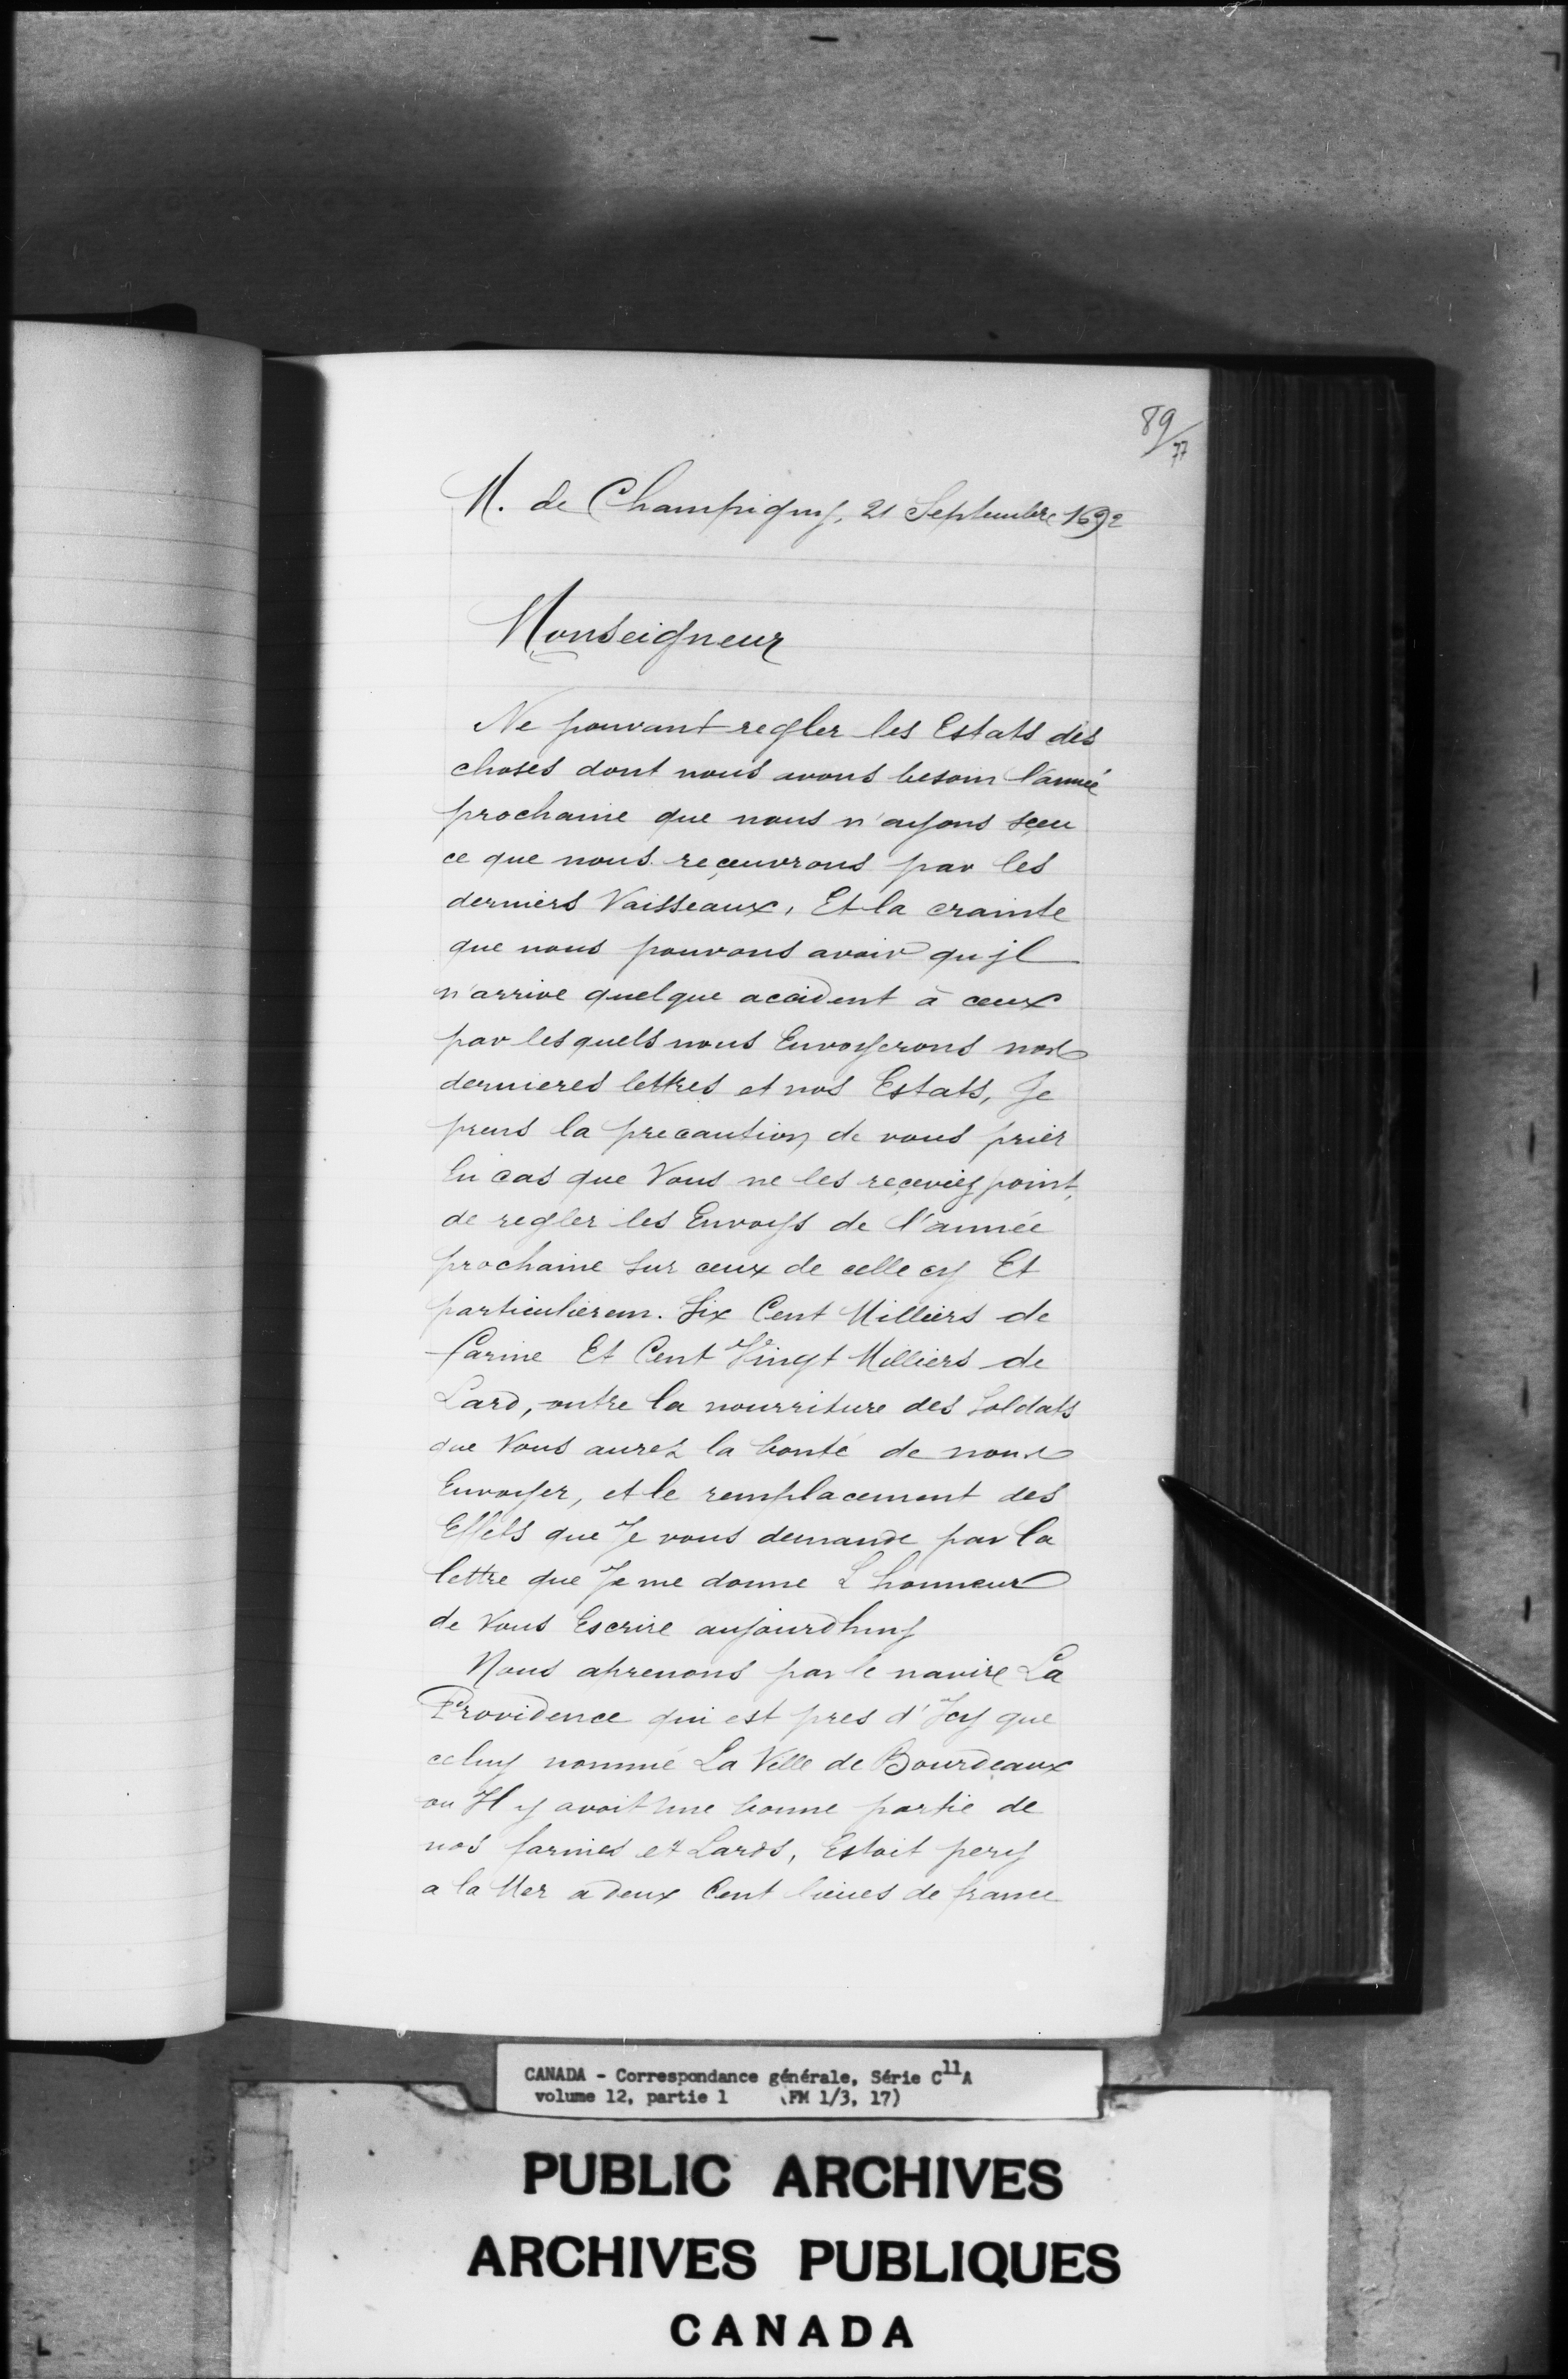 89/77
M. de Champigny, 21 Septembre 1692
Monseigneur
Ne pouvant regler les Estats des
choses dont nous avons besoin l'année
prochaine que nous n'ayons sçeu
ce que nous reçeuvrons par les
derniers Vaisseaux, Et la crainte
que nous pouvons avoir qu'jl
n'arrive quelque accident à ceux
par lesquels nous Envoyerons nos
dernieres lettres et nos Estats, Je
prens la precaution de vous prier
En cas que Vous ne les reçeviez point,
de regler les Envoys de l'année
prochaine sur ceux de celle cy Et
particulierem. Six Cent Milliers de
farine Et Cent Vingt Milliers de
Lard, outre la nourriture des Soldats
que Vous aurez la bonté de nous
Envoyer, et le remplacement des
Effets que Je vous demande par la
lettre que Je me donne L'honneur
de Vous Escrire aujourdhuy
Nous aprenons par le navire La
Providence qui est pres d'Jcy que
celuy nommé La Ville de Bourdeaux
ou Jl y avoit une bonne partie de
nos farines et Lards, Estoit pery
a la Mer a deux Cent lieues de france
CANADA - Correspondance générale, Série C11A
volume 12, partie 1 (FM 1/3, 17)
PUBLIC ARCHIVES
ARCHIVES PUBLIQUES
CANADA